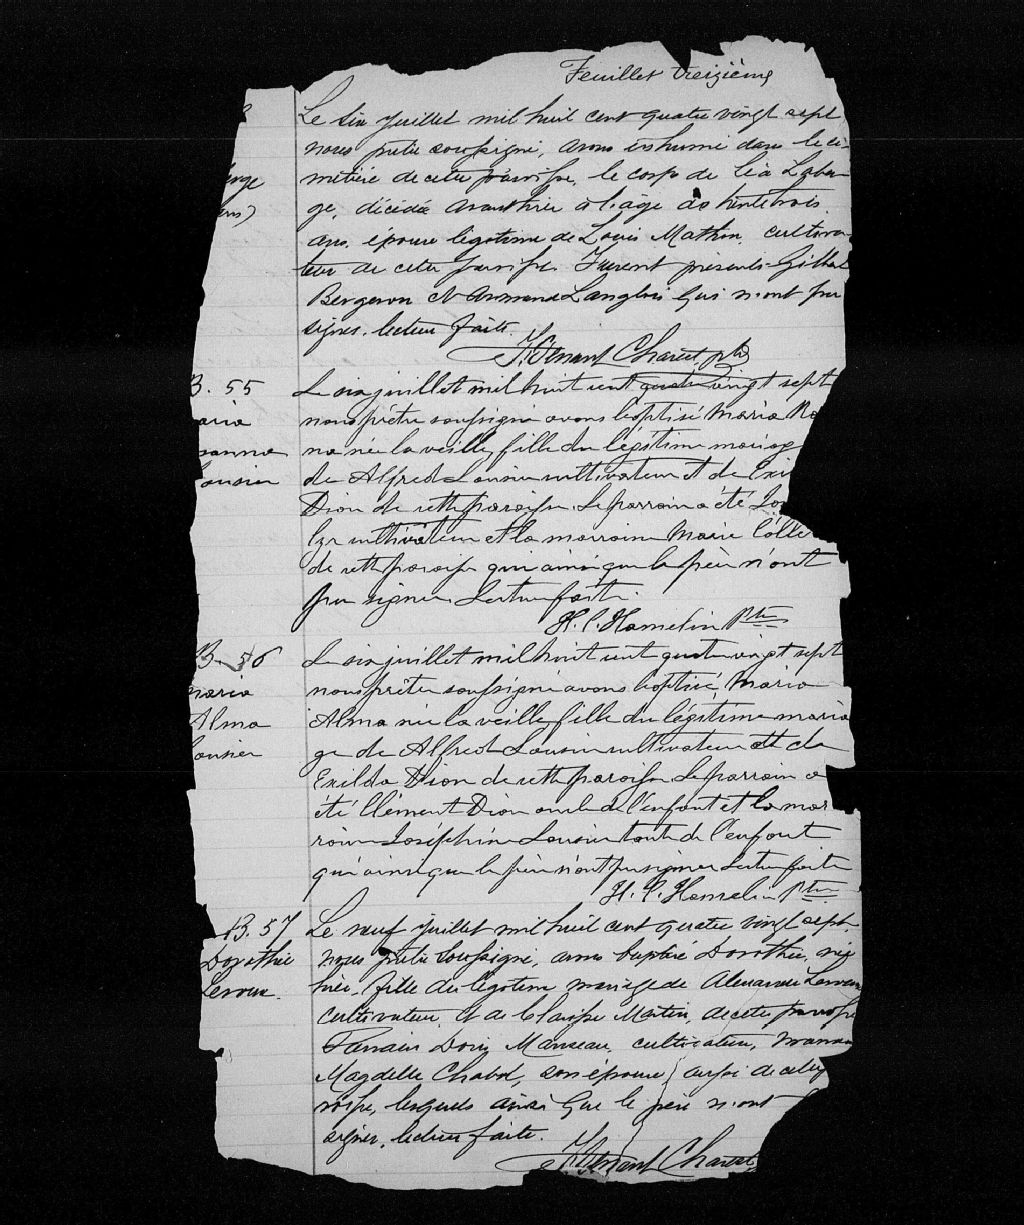 Feuillet treizième
Le six juillet mil huit cent quatre vingt sept
nous prêtre soussigné, avons inhumé dans le ci-
metière de cette paroisse, le corps de Léa Laber
erge
ge, décédée avant hier à l'age de trente trois
ans, épouse légitime de Louis Mathon, cultiva
teur de cette paroisse. Furent présents
Bergeron et Armand Langlois qui n'ont pu
signer. lecture faite.
Charest ptre
B. 55
Le six juillet mil huit cent quatre vingt sept
aria
nous prêtre soussigné avons baptisé Maria Ro
sanna
na née la veille fille du légitime mariag
ousier
de Alfred Lousier cultivateur et de Exil
Dion de cette paroisse. Le parrain a été
cultivateur et la marraine Marie
de cette paroisse qui ainsi que le père n'ont
pu signer Lecture faite.
H. C. Hamelin Ptre
B. 56
Le six juillet mil huit cent quatre vingt sept
maria
nous prêtre soussigné avons baptisé Maria
Alma
Alma née la veille fille du légitime maria
ousier
ge de Alfred Lousier cultivateur et de
Exilda Dion de cette paroisse Le parrain a
été Clément Dion oncle de l'enfant et la mar
raine Joséphine Lousier tante de l'enfant
qui ainsi que le père n'ont pu signer Lecture faite
H. C. Hamelin Ptre
B. 57
Le neuf juillet mil huit cent quatre vingt sept.
Dorothée
nous prêtre soussigné, avons baptisé Dorothée, née
Leroux.
hier, fille du légitime mariage de
cultivateur, et de Martin, de cette paroisse
Parrain Manseau, cultivateur,
Magdelle Chabot, son épouse, aussi de cette pa
roisse, lesquels ainsi que le père n'ont
signer, lecture faite.
Charest